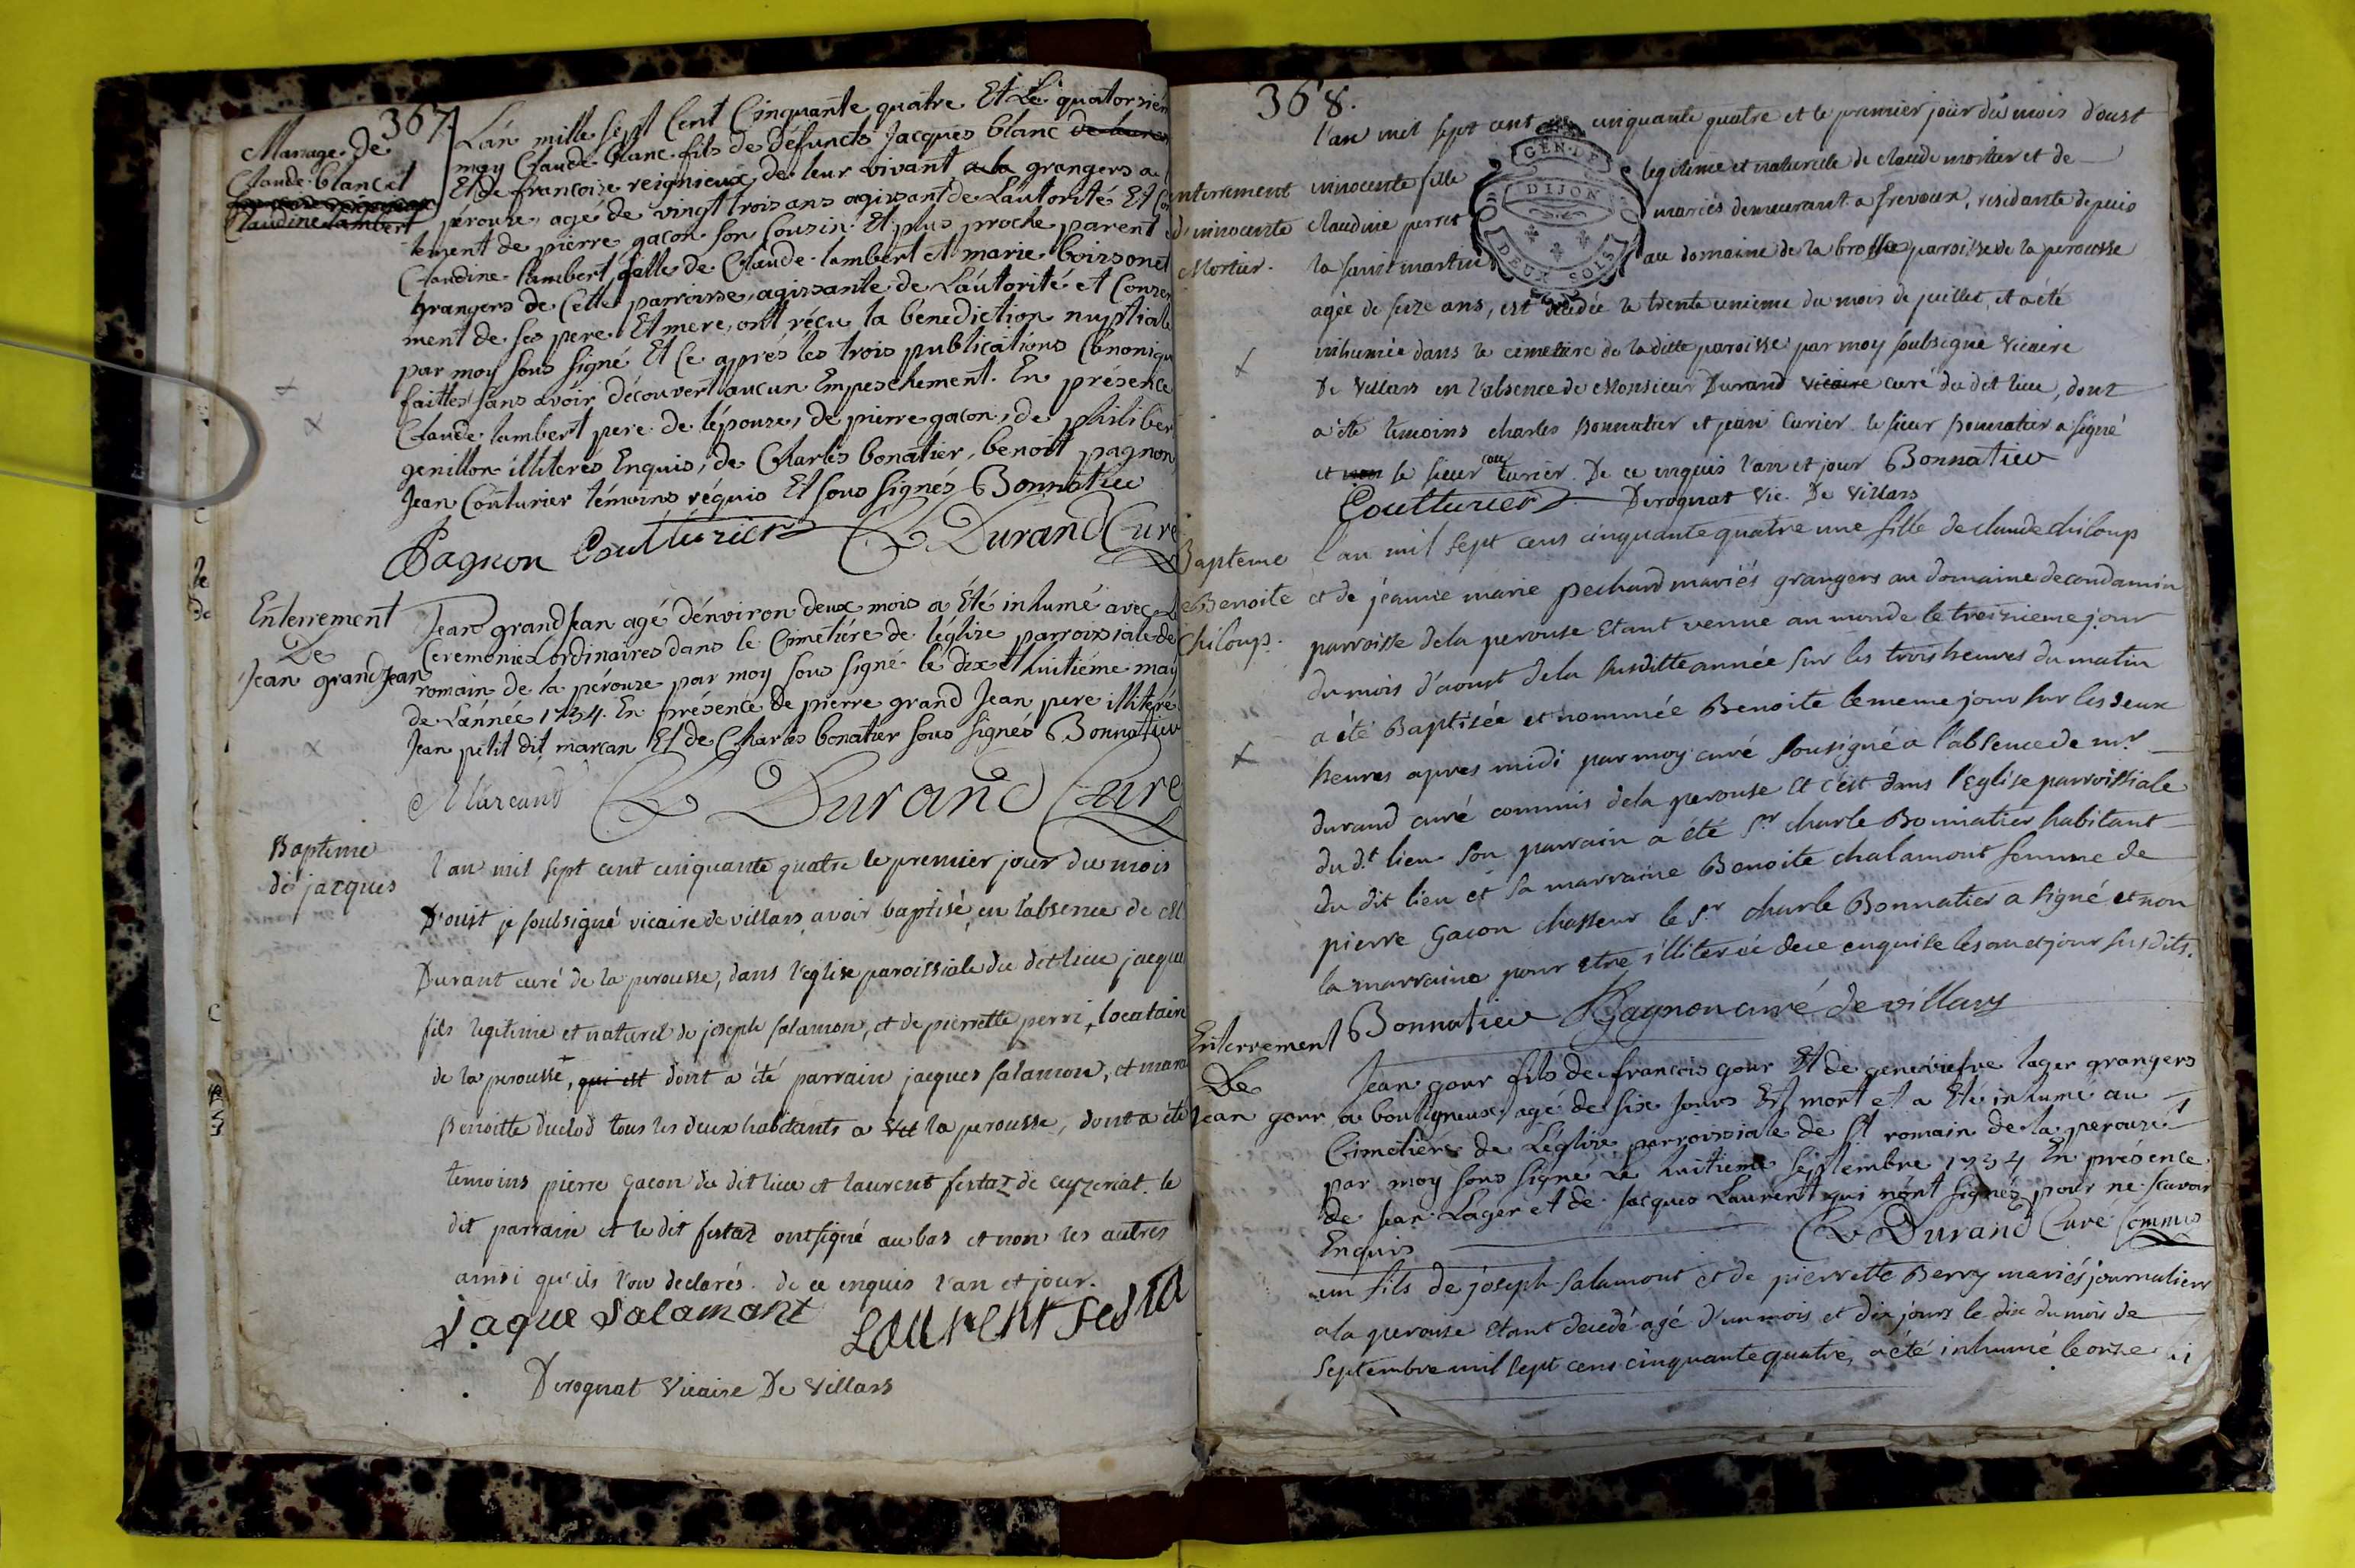 367
Mariage de
Claude blanc et
Claudine Lambert
L'an mille sept Cent Cinquante quatre Et Le quatorzièm
may Claude blanc fils de défuncts Jacques blanc
Et de françoise reignieux de leur vivant a la grangers a l
pérouze, agé de vingt trois ans agissant de L'autorité Et Con
tement de pierre gacon son Cousin Et plus proche parent et
Claudine Lambert fille de Claude lambert et marie boissonet
grangers de Cette parroisse, agissante de L'autorité et Conse
ment de ses pere Et mere, ont réçu la bénédiction nuptiale
par moy sous signé Et Ce aprés les trois publications Canoniqu
faittes sans avoir découvert aucun Empeschement. En présence
Claude Lambert pere de l'épouze, de pierre gacon, de philiber
genillon illiterés Enquis, de Charles bonatier, benoitt pagnon
Jean Couturier témoins réquis Et sous signés Bonnatier
Pagnon Coutturier Durand Curé
Enterrement
De
Jean grand Jean
Jean grand Jean agé d'énviron deux mois a Eté inhumé avec Le
Ceremonies ordinaires dans le Cimetiére de l'églize parroissiale de
romain de la pérouze par moy sous signé le dix et huitiéme may
de L'année 1754. En présence de pierre grand Jean pere illiteré
Jean petit dit marcan Et de Charles bonatier sous signés Bonnatier
Marcand Durand Curé
Baptême
de jacques
l'an mil sept cent cinquante quatre le premier jour du mois
D'oust je soubsigné vicaire de villars avoir baptisé, en l'absence de M
Durant curé de la perousse, dans l'eglise paroissiale du dit lieu jacque
fils legitime et naturel de joseph salamon, et de pierrette perri, locatair
de la perousse, qui est dont a été parrain jacques salamon, et mara
Benoitte duclos tous les deux habitants a la perousse, dont a été
temoins pierre gacon du dit lieu et laurent festaz de ceyzeriat. le
dit parrain et le dit festaz ont signé au bas et non les autres
ainsi qu'ils l'on declarés. de ce enquis l'an et jour.
jaque Salamont Laurent festa
Derognat Vicaire De Villars
368.
GEN. DE
DIJON
DEUX SOLS
Enterement
d'innocente
Mortier.
l'an mil sept cent cinquante quatre et le premier jour du mois d'oust
innocente fille legitime et naturelle de claude mortier et de
claudine perret mariés demeurant a frevoux, residante depuis
la saint martin au domaine de la brosse paroisse de la perousse
agée de seize ans, est decedée le trente unieme du mois de juillet, et a été
inhumée dans le cimetiere de la ditte paroisse par moy soubsigné Vicaire
De Villars en l'absence de Monsieur Durand vicaire curé du dit lieu, dont
a été temoins charles Bonnatier et jean Curier. le sieur Bonnatier a signé
et non le sieur couturier. De ce enquis l'an et jour Bonnatier
Coutturier Derognat Vic. De Villars
Bapteme
de Benoite
Chiloup.
l'an mil sept cens cinquante quatre une fille de claude chiloup
et de jeanne marie pechard mariés grangers au domaine de condamin
parroisse de la perouse etant venue au monde le treizieme jour
du mois d'aoust de la susditte année sur les trois heures du matin
a été Baptisée et nommée Benoite le meme jour sur les deux
heures apres midi par moy curé sousigné a l'absence de mr.
durand curé commis de la perouse et c'est dans l'Eglise parroissiale
du dt. lieu son parrain a été sr. charle Bonnatier habitant
du dit lieu et sa marraine Benoite chalamont femme de
pierre gacon chasseur le sr. charle Bonnatier a signé et non
la marraine pour etre illiterée de ce enquise les an et jour susdits.
Bonnatier Pagnon curé de villars
Enterrement
De
Jean gour
Jean gour fils de francois gour Et de genevieve lager grangers
a bouligneux agé de six jours Est mort et a Eté inhumé au
Cimetiere de L'églize parroissiale de st romain de la perouze
par moy sous signé Le huitieme septembre 1754 En présence
de Jean Lager et de Jacques Laurent qui n'ont signés pour ne scavoir
Enquis Durand Curé Commis
un fils de joseph salamont et de pierrette Berry mariés journaliers
a la perouse etant decedé agé d'un mois et dix jours le dix du mois de
septembre mil sept cens cinquante quatre, a été inhumé le onze